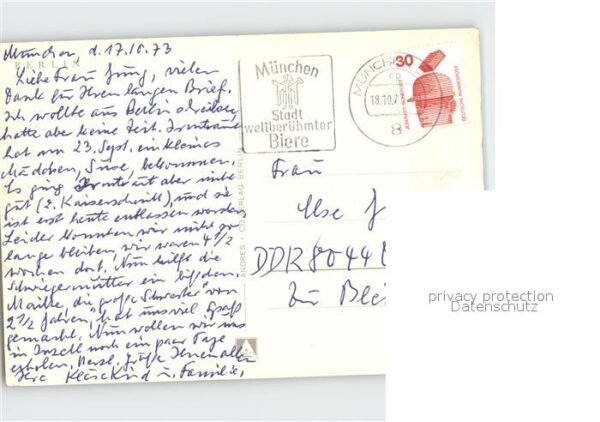 München d. 17.10.73
BERLIN
Liebe Frau Jung, vielen
Dank für Ihren langen Brief.
Ich wollte aus Berlin schreiben,
hatte aber keine Zeit. Irmtraut
hat am 23. Sept. ein kleines
Mädchen, Suse, bekommen.
Es ging Irmtraut aber nicht
gut (2. Kaiserschnitt), und sie
ist erst heute entlassen worden.
Leider konnten wir nicht so
lange bleiben, wir waren 4 1/2
Wochen dort. Nun hilft die
Schwiegermutter ein bißchen.
Maike, die "große Schwester" von
2 1/2 Jahren, hat uns viel Spaß
gemacht. Nun wollen wir uns
in Inzell noch ein paar Tage
erholen. Herzl. Grüße Ihnen allen
Ihre Kläre Kind u. Familie.
ANDRES + CO VERLAG BERLIN
München
Stadt
weltberühmter
Biere
MÜNCHEN
cp
18.10.73
8
30
DEUTSCHE BUNDESPOST
Frau
Ilse J
DDR 8044
Zur Blei
privacy protection
Datenschutz